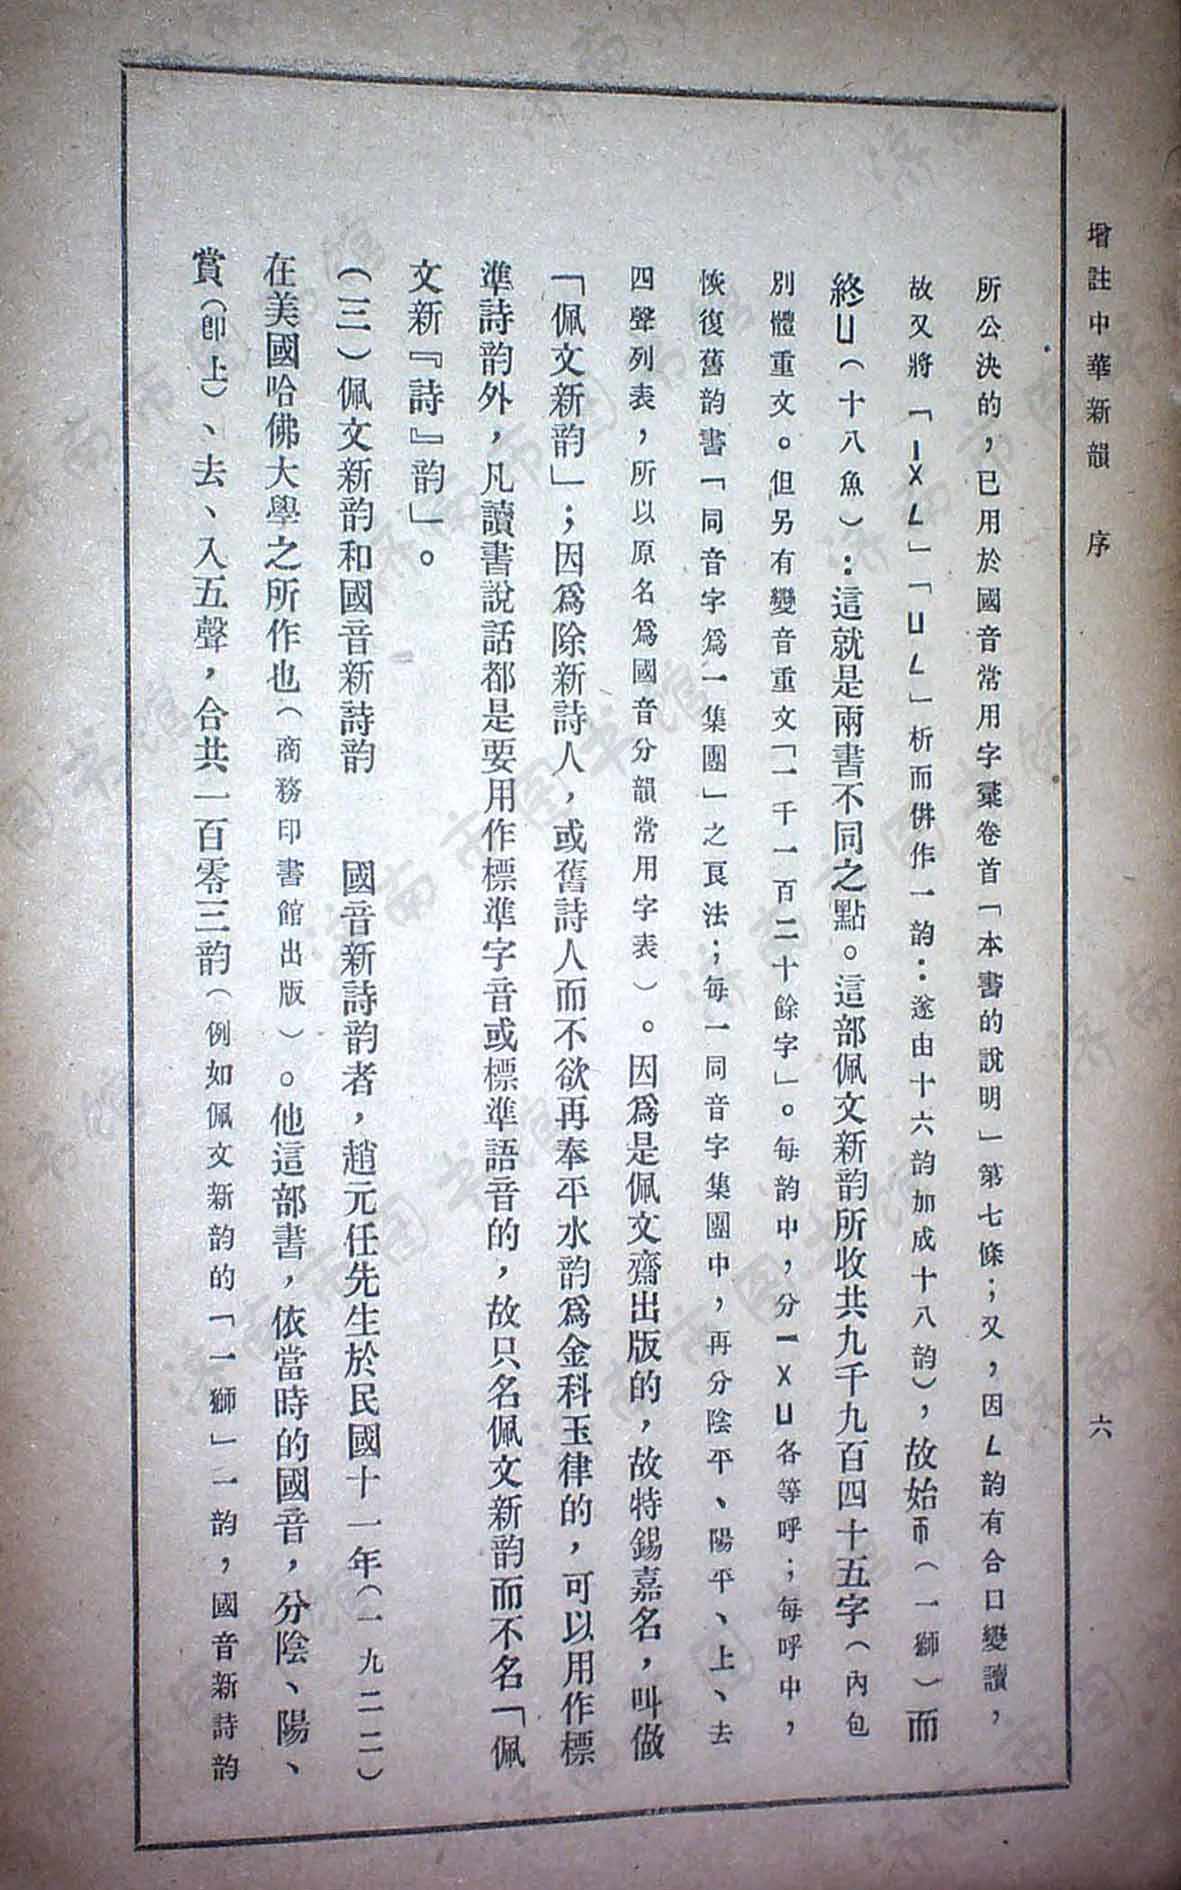 增註中華新韻　序　六
所公決的，已用於國音常用字彙卷首「本書的說明」第七條；又，因ㄥ韵有合口變讀，
故又將「ㄧㄨㄥ」「ㄩㄥ」析而併作一韵：遂由十六韵加成十八韵），故始ㄭ（一獅）而
終ㄩ（十八魚）：這就是兩書不同之點。這部佩文新韵所收共九千九百四十五字（內包
別體重文。但另有變音重文「一千一百二十餘字」。每韵中，分ㄧㄨㄩ各等呼；每呼中，
恢復舊韵書「同音字爲一集團」之良法；每一同音字集團中，再分陰平、陽平、上、去
四聲列表，所以原名爲國音分韻常用字表）。因爲是佩文齋出版的，故特錫嘉名，叫做
「佩文新韵」；因爲除新詩人，或舊詩人而不欲再奉平水韵爲金科玉律的，可以用作標
準詩韵外，凡讀書說話都是要用作標準字音或標準語音的，故只名佩文新韵而不名「佩
文新『詩』韵」。
（三）佩文新韵和國音新詩韵　國音新詩韵者，趙元任先生於民國十一年（一九二二）
在美國哈佛大學之所作也（商務印書館出版）。他這部書，依當時的國音，分陰、陽、
賞（卽上）、去、入五聲，合共一百零三韵（例如佩文新韵的「一獅」一韵，國音新詩韵